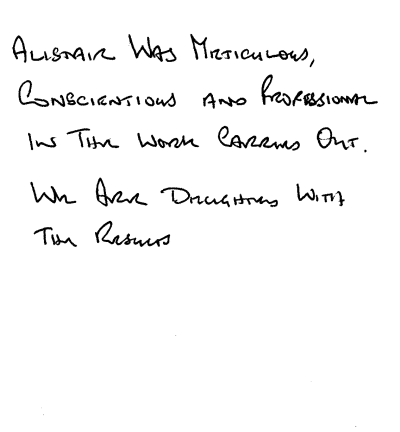 Alistair Was Meticulous,
Conscientious and Professional
In The Work Carried Out.
We Are Delighted With
The Results